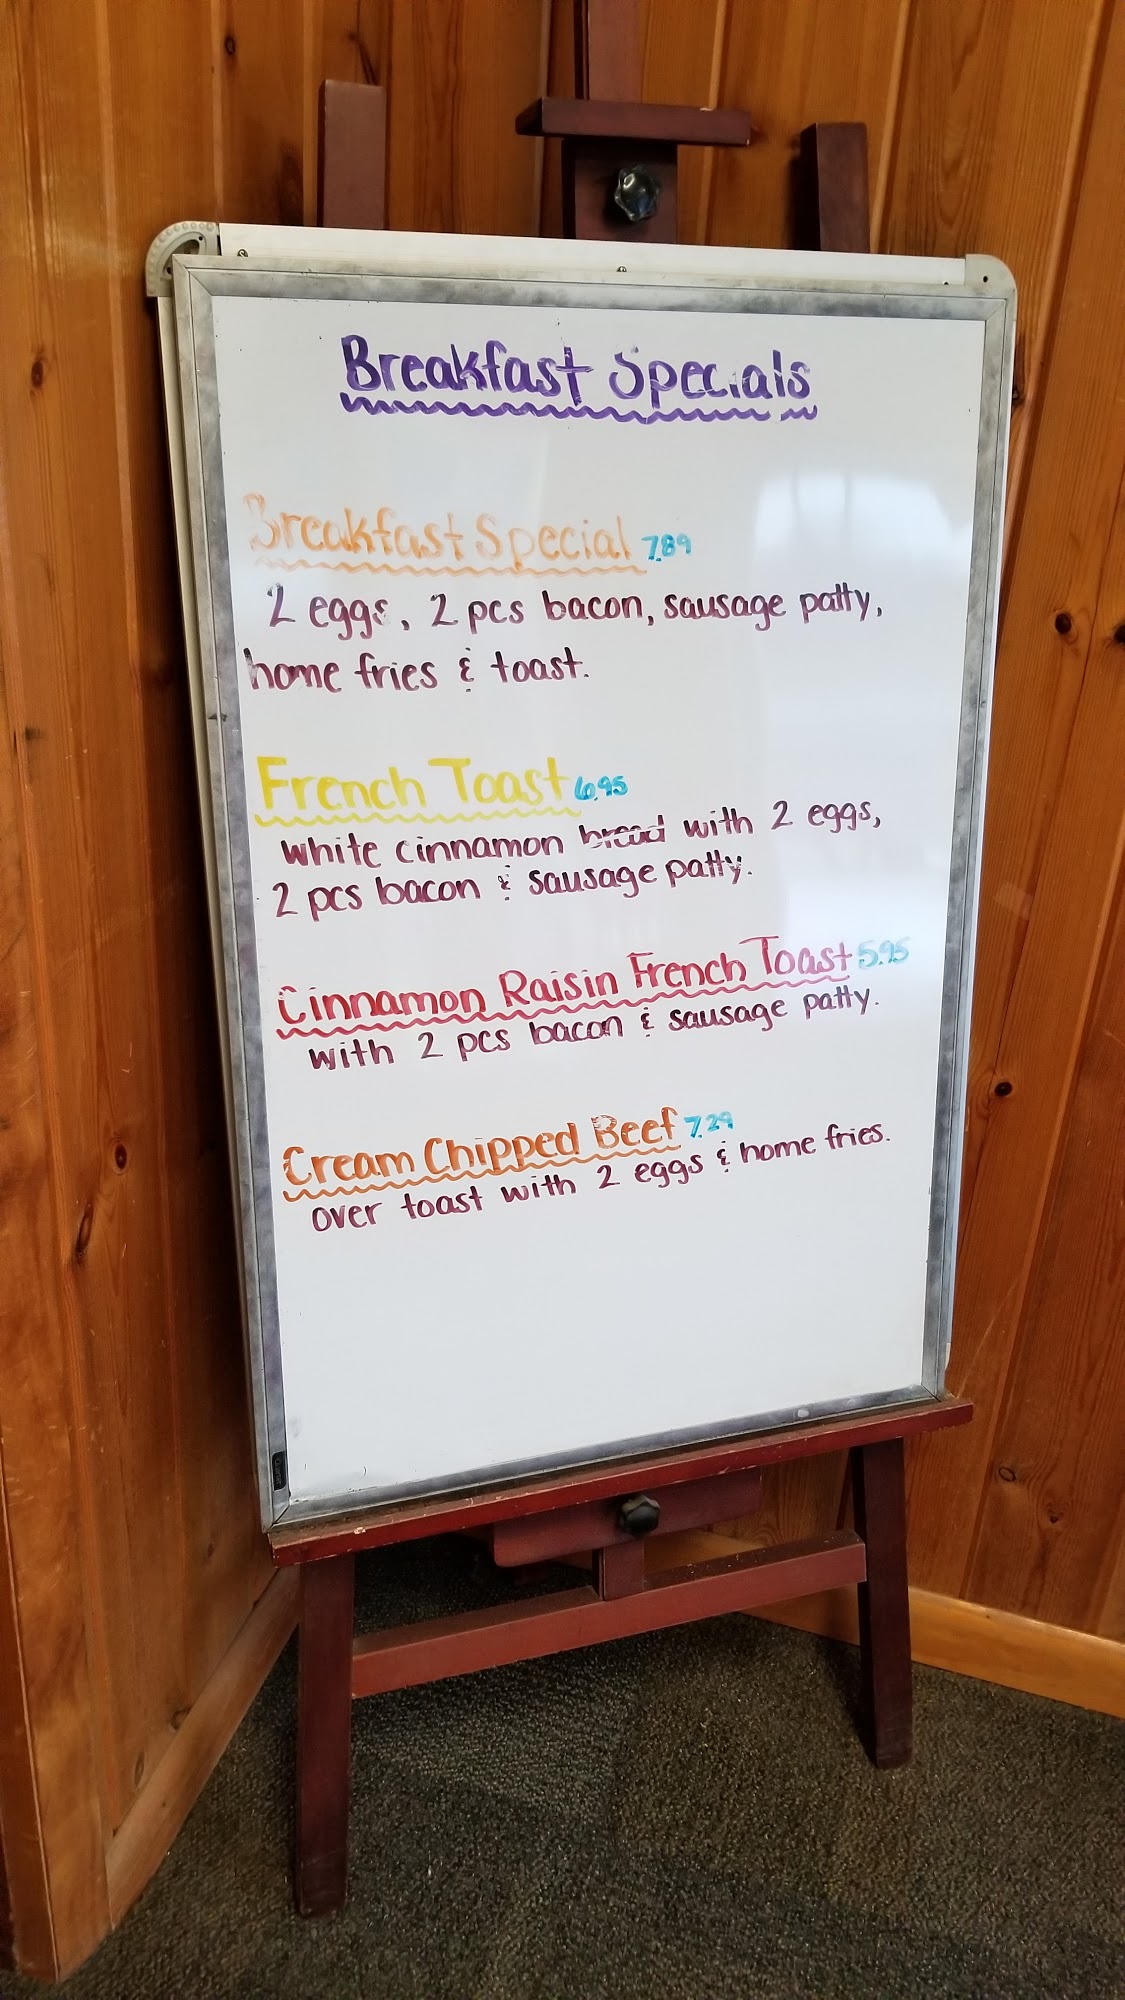 Breakfast Specials
Breakfast Special 7.89
2 eggs, 2 pcs bacon, sausage patty,
home fries & toast.
French Toast 6.95
white cinnamon bread with 2 eggs,
2 pcs bacon & sausage patty.
Cinnamon Raisin French Toast 5.95
with 2 pcs bacon & sausage patty.
Cream Chipped Beef 7.29
over toast with 2 eggs & home fries.